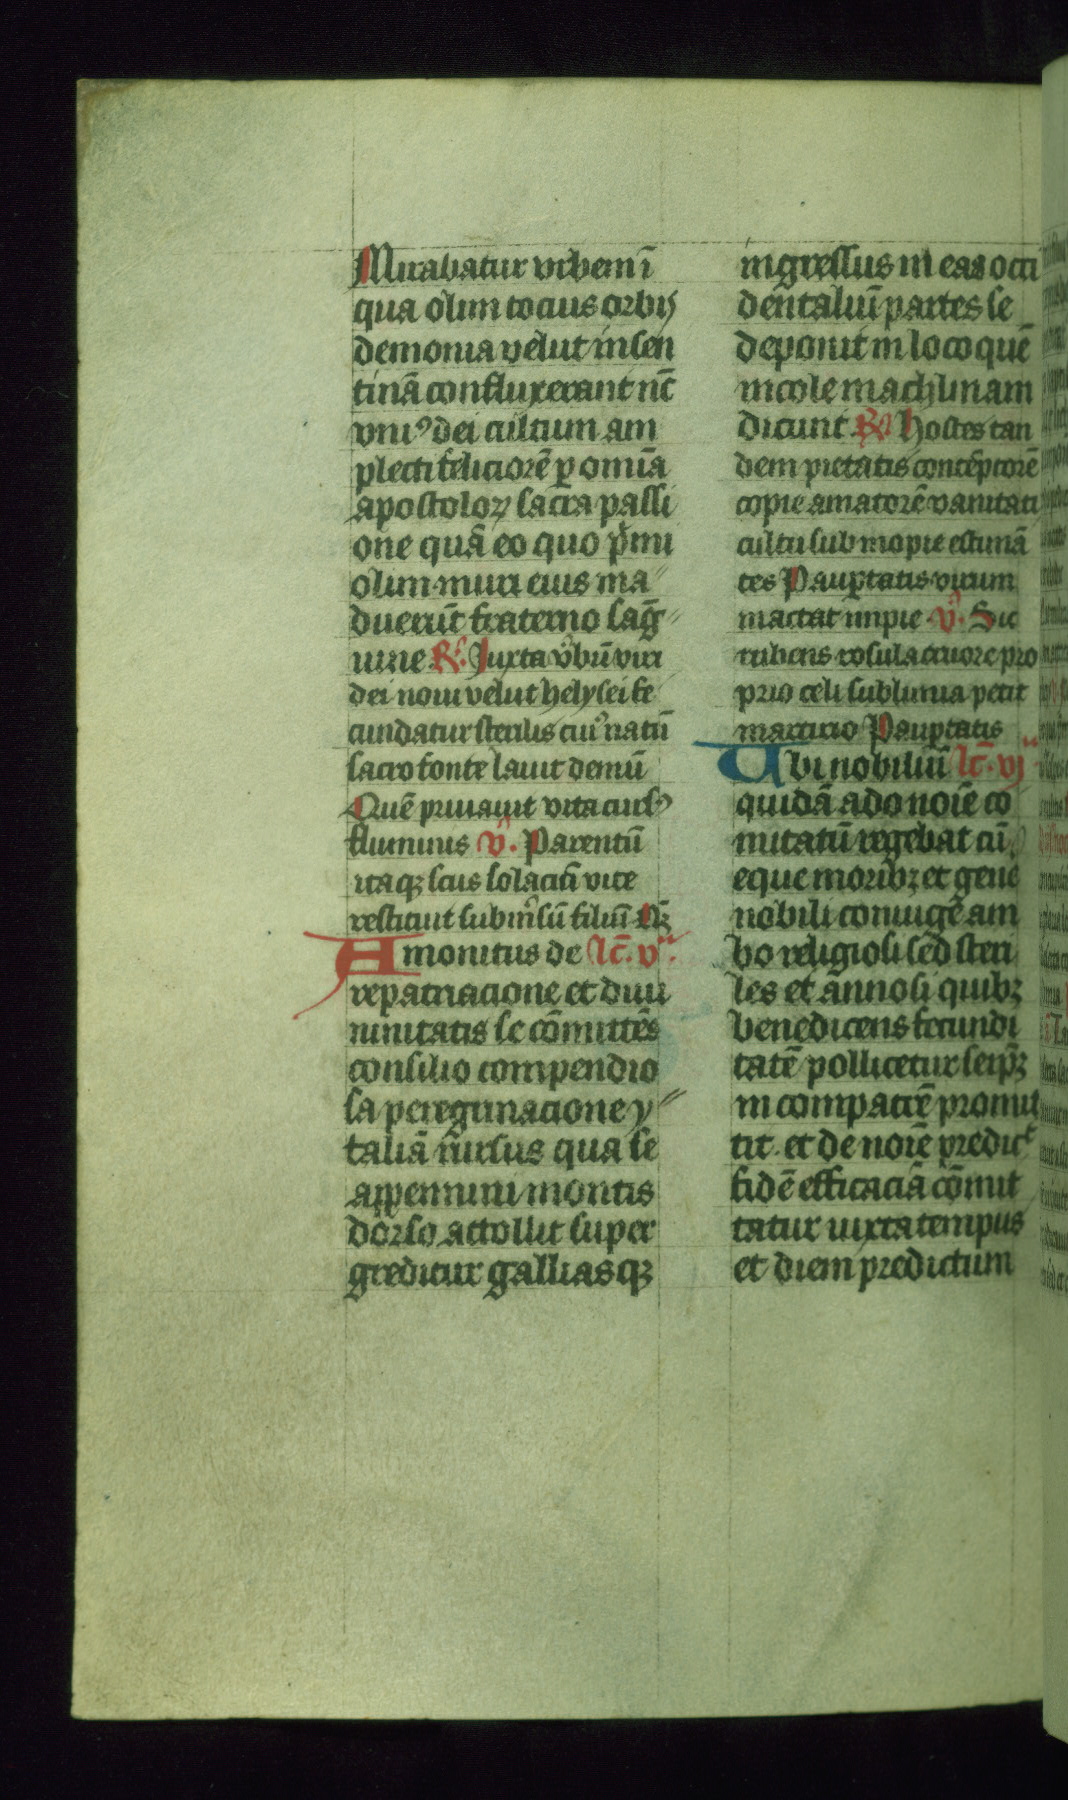 Mirabatur urbem ī
qua olim tocius orbis
demonia velut in sen
tinā confluxerant nc̄
vniꝰ dei cultium am
plecti feliciorē ꝑ omīa
apostoloꝝ sacra passi
one quā eo quo pͥmi
olim muri eius ma"
duerūt fraterno sāg"
uine R̸. Juxta v̾bū viri
dei noui velut helysei fe
cundatur sterilis cuiꝰ natū
sacro fonte lauit demū
Quē priuauit vita cursꝰ
fluminis v̾. Parentū
itaqꝫ scūs solaciū vite
restituit subm̾sū filiū Qꝫ
Amonitus de lc̄. vᵃ.
repatriacione et diui
ninitatis se cōmittēs
consilio compendio
sa peregrinacione y"
taliā rursus qua se
appennini montis
dorso attollit super
greditur galliasqꝫ
ingressus in eas occi
dentaliū partes se
deponit in loco quē
incole machlinam
dicunt R̸. Hostes tan
dem pietatis conceptorē
copie amatorē vanitati
cultu sub inopie estimā
tes Pauꝑtatis virum
mactat impie v̾. Sic
rubens rosula cruore pro
prio celi sublimia petit
martirio Pauꝑtatis
Vbi nobiliū lc̄. vjᵃ
quidā ado noīe co
mitatū regebat cū
eque moribꝫ et gene
nobili coniugē am
bo religiosi sed steri
les et annosi quibꝫ
benedicens fecundi
tatē pollicetur seipꝫ
in compatrē promit
tit et de noīe predict̄
fidē efficaciā cōmit
tatur iuxta tempus
et diem predictum